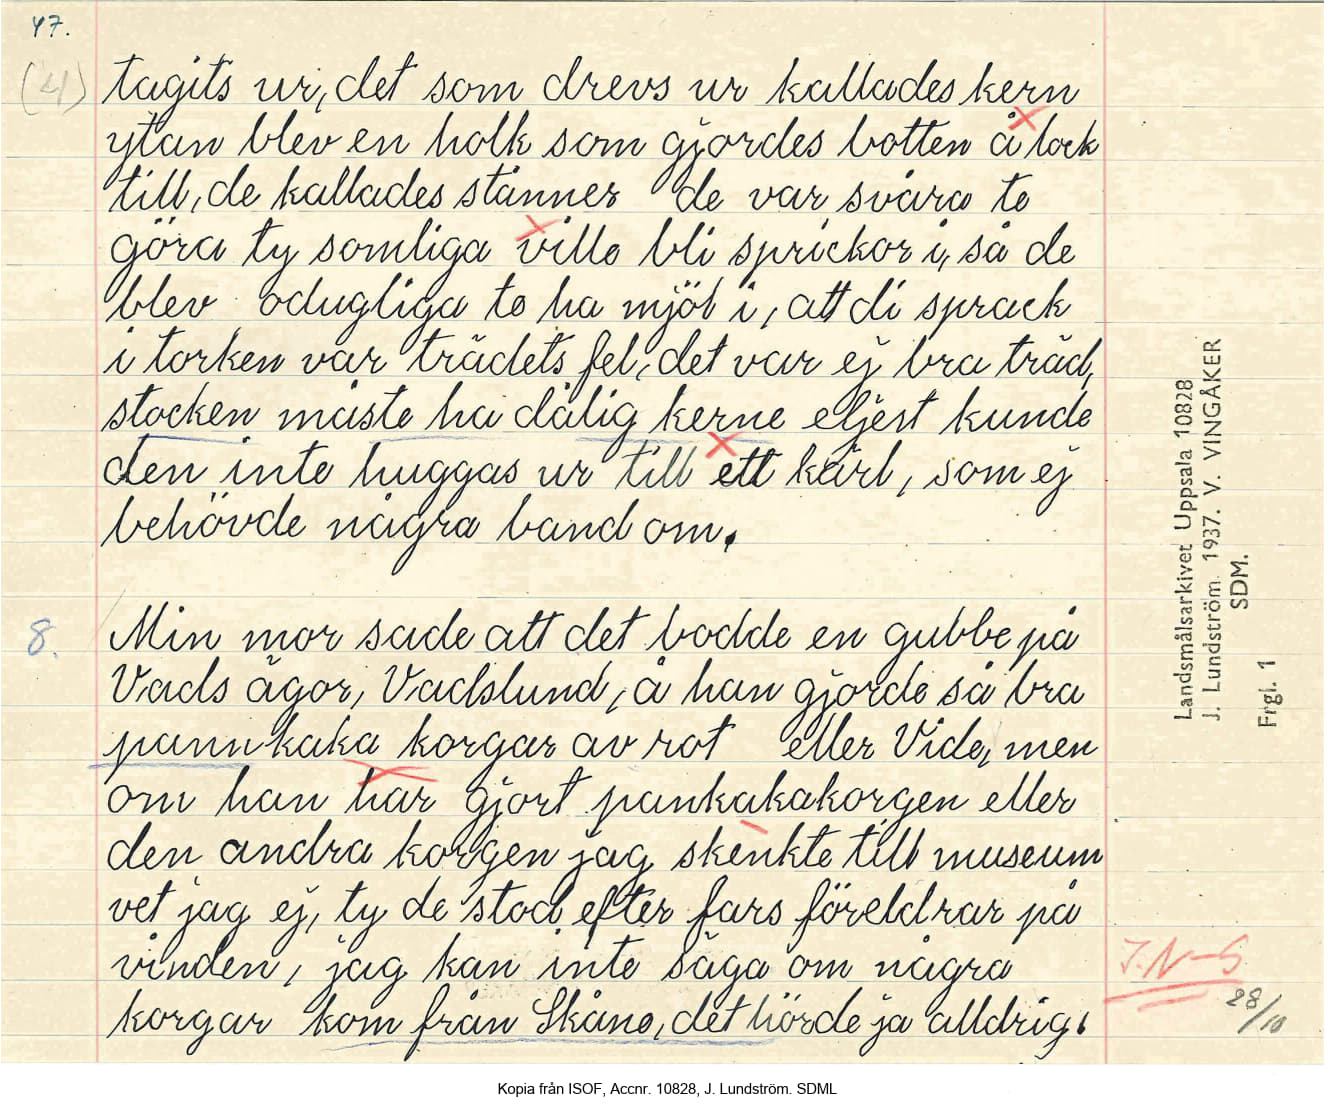 47.
(4)
tagits ur, det som drevs ur kallades kern
ytan blev en holk som gjordes botten å lock
till, de kallades stånner de var svåra te
göra ty somliga ville bli sprickor i, så de
blev odugliga te ha mjöl i, att di sprack
i torken var trädets fel, det var ej bra träd,
stocken måste ha dålig kerne eljest kunde
den inte huggas ur till ett kärl, som ej
behövde några band om.
8.
Min mor sade att det bodde en gubbe på
Vads ägor, Vadslund, å han gjorde så bra
pannkaka korgar av rot eller Vide, men
om han har gjort pankakakorgen eller
den andra korgen jag skenkte till museum
vet jag ej, ty de stod efter fars föreldrar på
vinden, jag kan inte säga om några
korgar kom från Skåne, det hörde ja alldrig.
Landsmålsarkivet Uppsala 10828
J. Lundström. 1937. V. VINGÅKER
SDM.
Frgl. 1
J.N-S
28/10
Kopia från ISOF, Accnr. 10828, J. Lundström. SDML